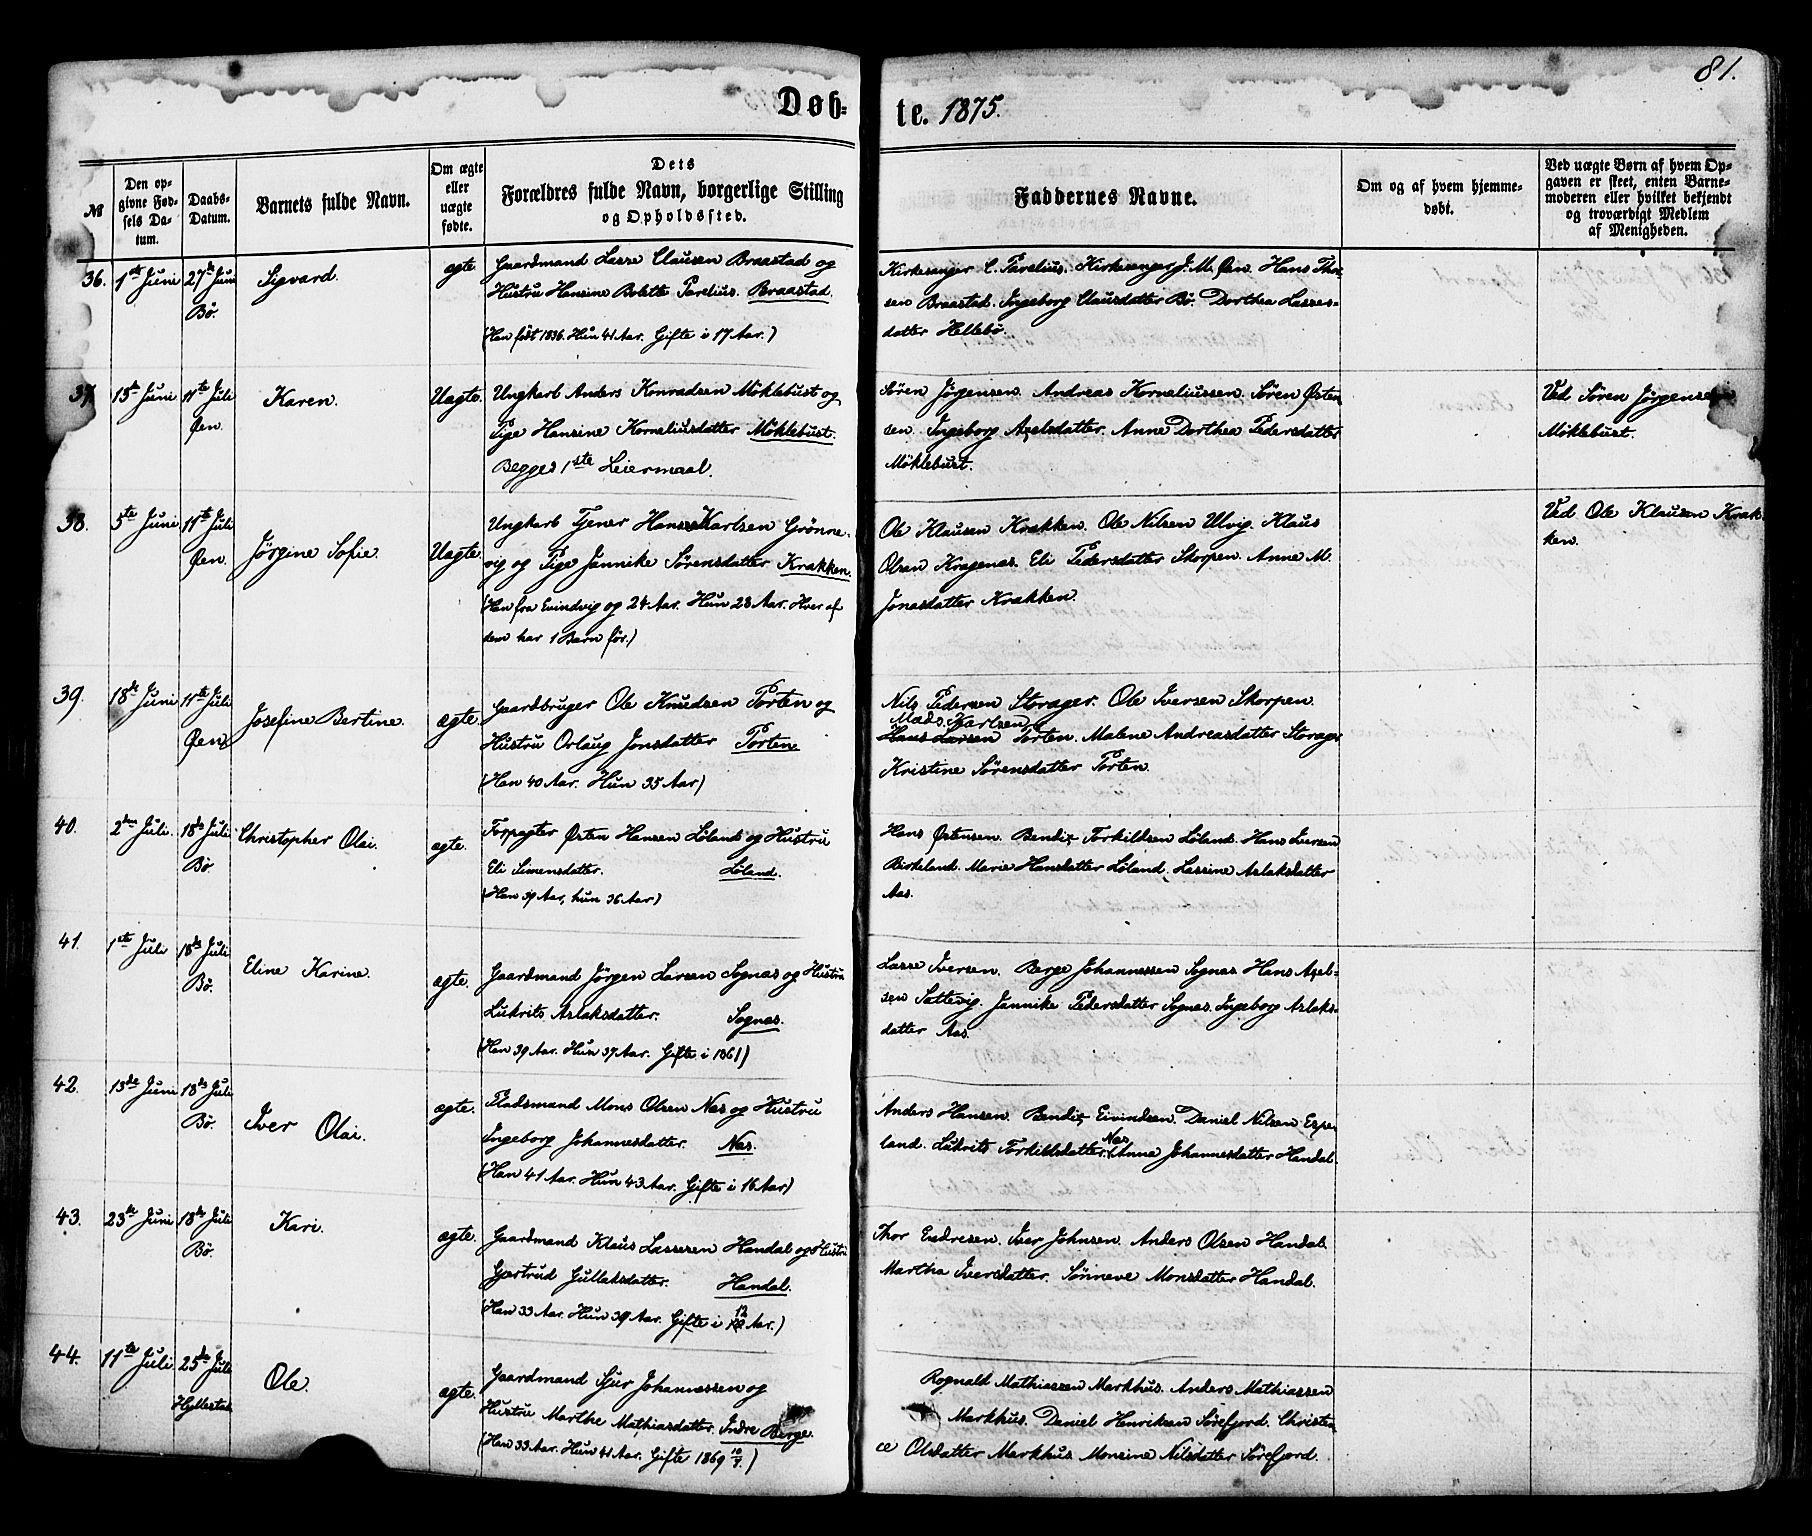 81.
Døb-te. 1875.
№
Den opgivne Fødsels Datum.
Daabs-Datum.
Barnets fulde Navn.
Om ægte eller uægte fødte.
Dets Forældres fulde Navn, borgerlige Stilling og Opholdssted.
Faddernes Navne.
Om og af hvem hjemmedøbt.
Ved uægte Børn af hvem Opgaven er skeet, enten Barnemoderen eller hvilket bekjendt og troværdigt Medlem af Menigheden.
36. 1ste Juni 27de Juni Bø. Sigvard. ægte
Gaardmand Lasse Clausen Braastad og
Hustru Hansine Bolette Parelius. Braastad.
(Han født 1836. Hun 41 Aar. Gifte i 17 Aar.)
Kirkesanger C. Parelius. Kirkesanger J. M. Øen. Hans Thor-
sen Braastad. Ingeborg Clausdatter Bø. Dorthea Lasses-
datter Hellebø.
37. 15de Juni 11te Juli Øen. Karen. Uægte.
Ungkarl Anders Konradsen Møklebust og
Pige Hansine Korneliusdatter Møklebust.
Begges 1ste Leiermaal.
Søren Jørgensen. Andreas Korneliussen. Søren Østen-
sen. Ingeborg Axelsdatter. Anne Dorthea Pedersdatter
Møklebust.
Ved Søren Jørgensen
Møklebust.
38. 5te Juni 11te Juli Øen. Jørgine Sofie. Uægte.
Ungkarl Tjener Hans Karlsen Grønne-
vig og Pige Jannike Sørensdatter Krakken.
(Han fra Evindvig og 24 Aar. Hun 28 Aar. Hver af
dem har 1 Barn før.)
Ole Klausen Krakken. Ole Nilsen Ulvig. Klaus
Olsen Kragenæs. Eli Pedersdatter Skorpen. Anne M.
Jonasdatter Krakken.
Ved Ole Klausen Krak-
ken.
39. 18de Juni 11te Juli Øen. Josefine Bertine. ægte.
Gaardbruger Ole Knudsen Porten og
Hustru Orlaug Jonsdatter Porten
(Han 40 Aar. Hun 35 Aar)
Nils Pedersen Storager. Ole Iversen Skorpen.
Mads Karlsen
Hans Larsen Porten. Malene Andreasdatter Storager
Kristine Sørensdatter Porten.
40. 2den Juli. 18de Juli Bø. Christopher Olai. ægte.
Forpagter Østen Hansen Løland og Hustru
Eli Simensdatter. Løland.
(Han 39 Aar, hun 36 Aar)
Hans Østensen. Bendix Torkildsen Løland. Hans Iversen
Birkeland. Marie Hansdatter Løland. Lassine Aslaksdatter
Aas.
41. 1ste Juli 18de Juli Bø. Eline Karine. ægte.
Gaardmand Jørgen Larsen Sognæs og Hustru
Lukrits Aslaksdatter. Sognæs.
(Han 39 Aar. Hun 37 Aar. Gifte i 1861)
Lasse Iversen. Berge Johannessen Sognæs Hans Axel-
sen Sættevig. Jannike Pedersdatter Sognæs. Ingeborg Aslaks-
datter Aas.
42. 13de Juni 18de Juli Bø. Iver Olai. ægte.
Pladsmand Mons Olsen Næs og Hustru
Ingeborg Johannesdatter. Næs.
(Han 41 Aar. Hun 43 Aar. Gifte i 16 Aar)
Anders Hansen. Bendix Eivindsen. Daniel Nilsen Espe-
land. Lukrits Torkildsdatter Næs. Anna Johannesdatter Handal.
43. 23de Juni 18de Juli Bø. Kari. ægte.
Gaardmand Klaus Lassesen Handal og Hustru
Gjertrud Gullaksdatter. Handal.
(Han 33 Aar. Hun 39 Aar. Gifte i 12 Aar.)
Thor Endresen. Iver Johnsen. Anders Olsen Handal.
Martha Iversdatter. Sønneve Monsdatter Handal.
44. 11te Juli 25de Juli Hyllestad Ole. ægte.
Gaardmand Sjur Johannessen og
Hustru Marthe Mathiasdatter. Indre Berge.
(Han 33 Aar. Hun 41 Aar. Gifte 1869 10/7.)
Rognald Mathiassen Markhus. Anders Mathiassen
Markhus. Daniel Henriksen Sørefjord. Christen-
ce Olsdatter Markhus. Monsine Nilsdatter Sørefjord.